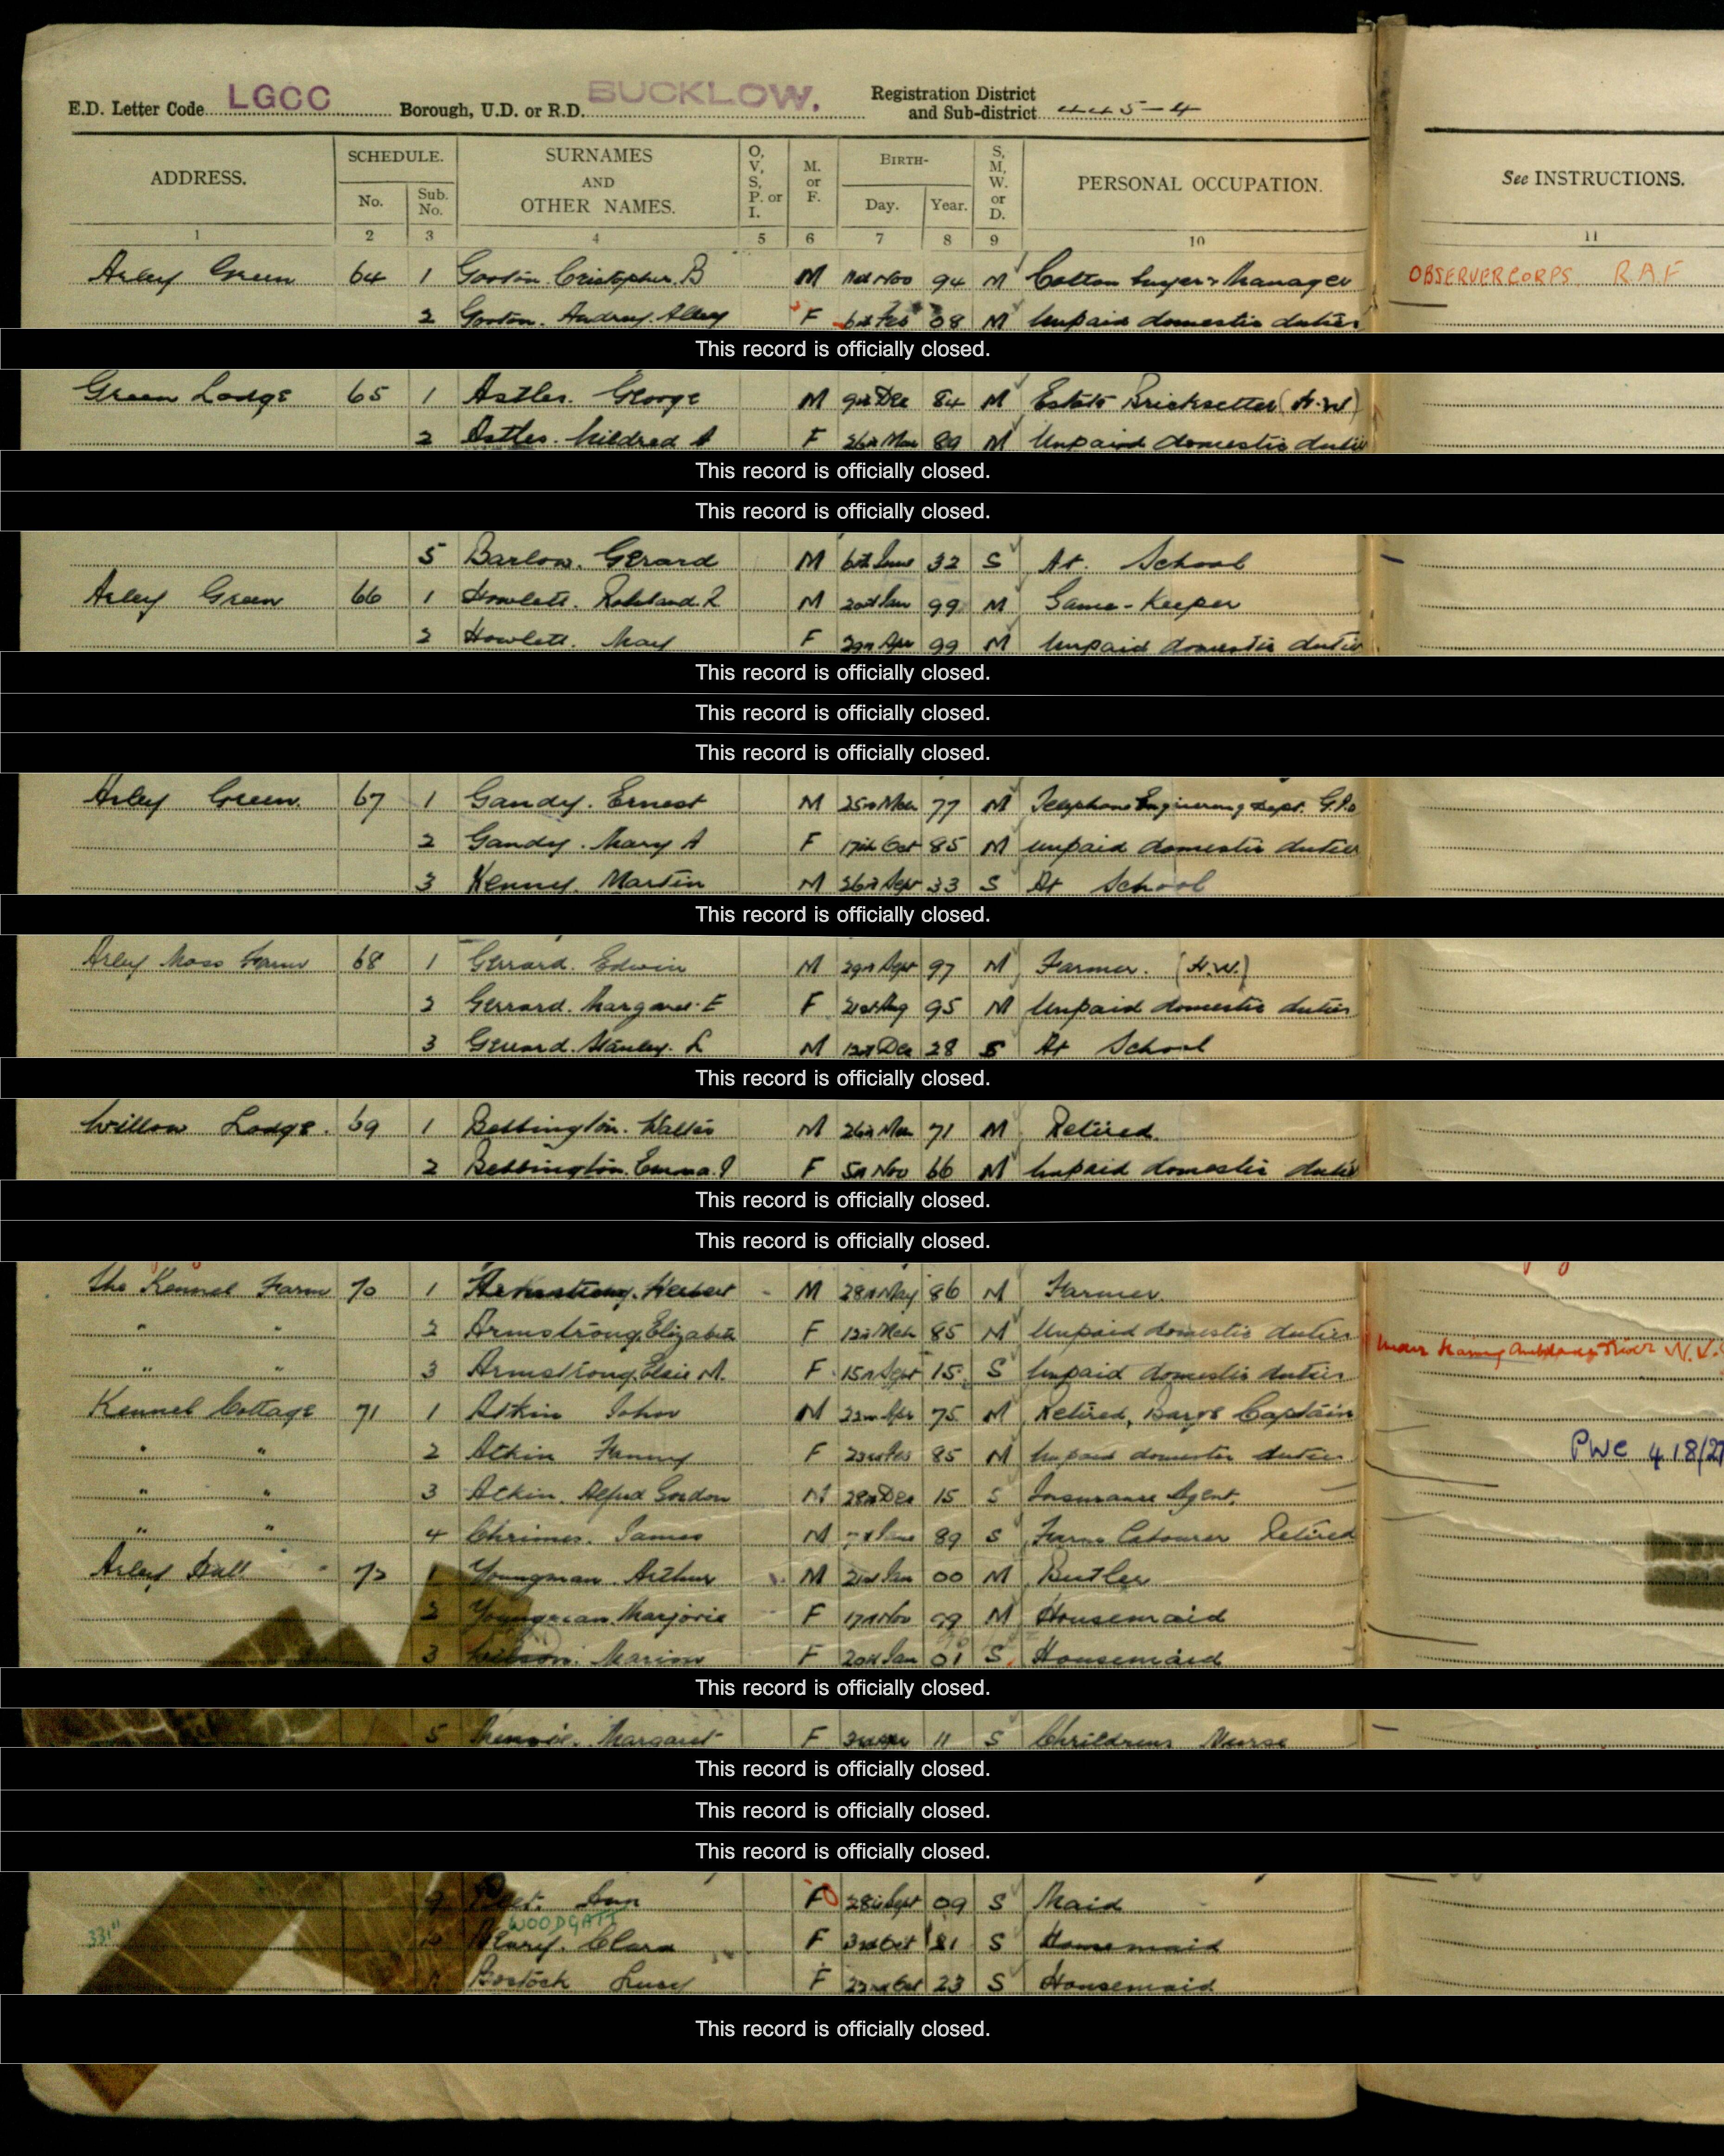 E.D. Letter Code LGCC Borough, U.D. or R.D. BUCKLOW. Registration District and Sub-district 445-4
ADDRESS. SCHEDULE. No. Sub. No. SURNAMES AND OTHER NAMES. O, V, S, P. or I. M. or F. BIRTH- Day. Year. S, M, W. or D. PERSONAL OCCUPATION. See INSTRUCTIONS.
1 2 3 4 5 6 7 8 9 10 11
Arley Green 64 1 Cristopher B M Nov 94 M Cotton buyer & Manager OBSERVER CORPS. R.A.F
2 Audrey F Feb 08 M Unpaid domestic duties
This record is officially closed.
Green Lodge 65 1 Astles. George M 9th Dec 84 M Estate Bricksetter (H.W)
2 Astles. Mildred A F 26th Mar 89 M Unpaid domestic duties
This record is officially closed.
This record is officially closed.
5 Barlow. Gerard M 6th June 32 S At School
Arley Green 66 1 Howlett. M Jan 99 M Game-Keeper
2 Howlett. May F Apr 99 M Unpaid domestic duties
This record is officially closed.
This record is officially closed.
This record is officially closed.
Arley Green. 67 1 Gandy. Ernest M 25th Mch 77 M Telephone Engineering Dept. G.P.O
2 Gandy. Mary A F 17th Oct 85 M Unpaid domestic duties
3 Kenny. Martin M 26th Sept 33 S At School
This record is officially closed.
Arley Moss Farm 68 1 Gerrard. Edwin M 29th Sept 97 M Farmer. (H.W.)
2 Gerrard. Margaret E F 21st Aug 95 M Unpaid domestic duties
3 Gerrard. Stanley. L M 12th Dec 28 S At School
This record is officially closed.
Willow Lodge. 69 1 Bebbington. Walter M 26th Mar 71 M Retired.
2 Bebbington. Emma. F 5th Nov 66 M Unpaid domestic duties
This record is officially closed.
This record is officially closed.
The Kennel Farm 70 1 Armstrong. Herbert M 28th May 86 M Farmer.
" " 2 Armstrong, Elizabeth F 12th Mch 85 M Unpaid domestic duties
Under training Ambulance Driver W.V.
" " 3 Armstrong, Elsie M. F 15th Sept 15 S Unpaid domestic duties
Kennel Cottage 71 1 Atkin John M 22nd Apr 75 M Retired, Barge Captain
" " 2 Atkin Fanny F 23rd Feb 85 M Unpaid domestic duties PWC 4 18/2
" " 3 Atkin. Alfred Gordon M 28th Dec 15 S Insurance Agent.
" " 4 Chrimes. James M June 89 S Farm Labourer Retired
Arley Hall 72 1 Youngman. Arthur M Jan 00 M Butler
2 Youngman. Marjorie F 17th Nov 99 M Housemaid
3 Wilson. Marion F 20th Jan 01 S Housemaid
This record is officially closed.
5 Margaret F 11 S Childrens Nurse
This record is officially closed.
This record is officially closed.
This record is officially closed.
9 Ann F 28th Sept 09 S Maid
WOODGATE
331"
Clara F 3rd Oct 81 S Housemaid
Bostock Lucy F 22nd Oct 23 S Housemaid
This record is officially closed.